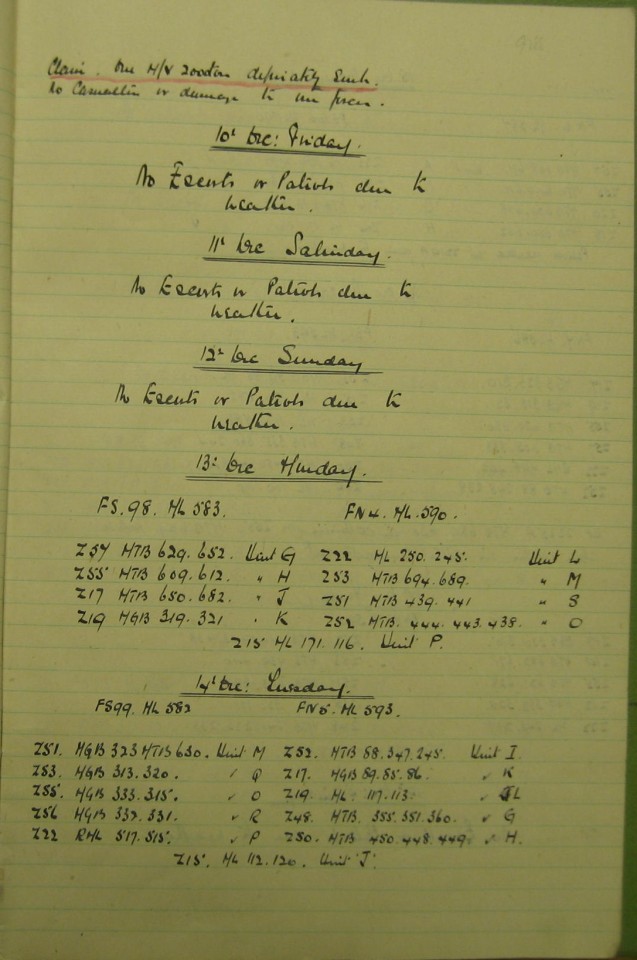 Claim. One M/V 2000 ton definitely sunk.
No Casualties or damage to our forces.
10th Dec: Friday.
No Escorts or Patrols due to
weather.
11th Dec Saturday.
No Escorts or Patrols due to
weather.
12th Dec Sunday
No Escorts or Patrols due to
weather.
13th Dec Monday.
FS.98. ML 583. FN 4. ML.590.
Z57 MTB 629.652. Unit G Z22 ML 250.245. Unit L
Z55 MTB 609.612. " H Z53 MTB 694.689. " M
Z17 MTB 650.682. " J Z51 MTB 439.441 " S
Z19 MGB 319.321 " K Z52 MTB. 444.443.438. " O
Z15 ML 171.116. Unit P.
14th Dec: Tuesday.
FS99. ML 582 FN5. ML 593.
Z51. MGB 323 MTB 630. Unit M Z52. MTB 88.347.245. Unit I.
Z53. MGB 313.320. " Q Z17. MGB 89.85.86. " K
Z55. MGB 333.315. " O Z19. ML. 117.113. " L
Z56 MGB 332.331. " R Z48. MTB. 355.351.360. " G
Z22 RML 517.515. " P Z50. MTB 450.448.449. " H.
Z15. ML 112.120. Unit J.